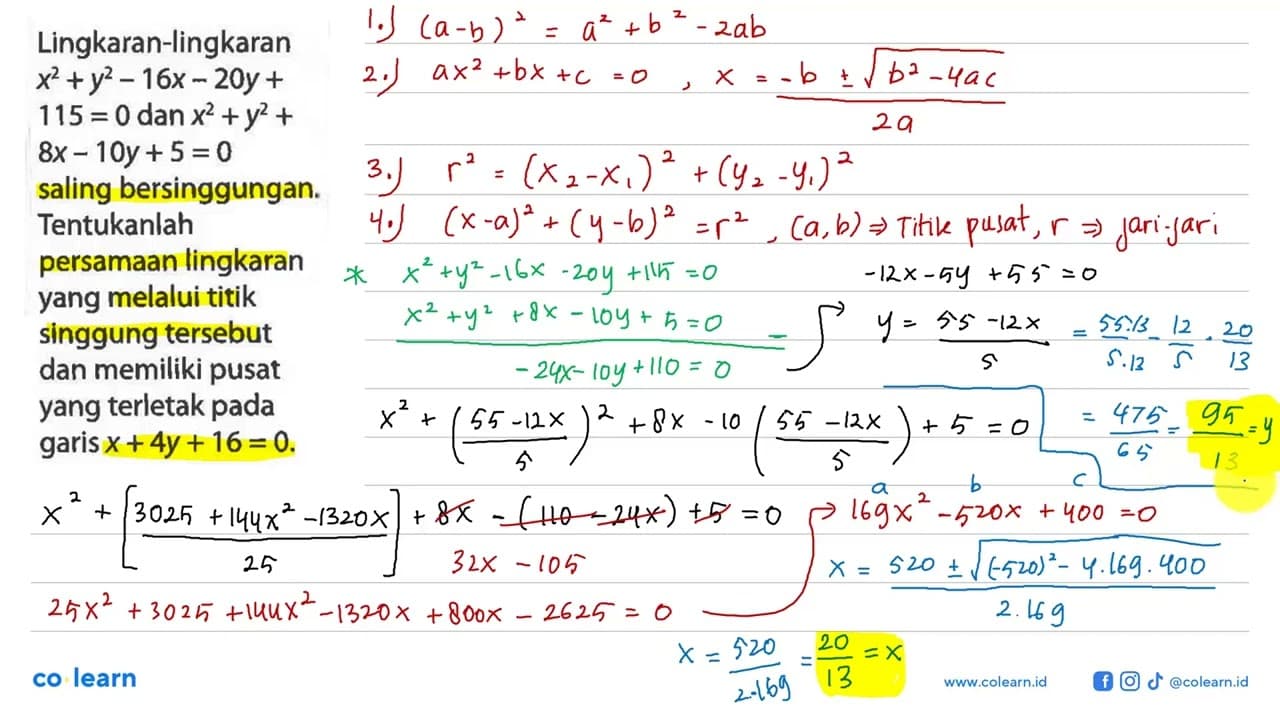 Lingkaran-lingkaran
x² + y² – 16x – 20y +
115 = 0 dan x² + y² +
8x – 10y + 5 = 0
saling bersinggungan.
Tentukanlah
persamaan lingkaran
yang melalui titik
singgung tersebut
dan memiliki pusat
yang terletak pada
garis x + 4y + 16 = 0.
1.) (a-b)² = a² + b² - 2ab
2.) ax² + bx + c = 0 , x = -b ± √b² - 4ac / 2a
3.) r² = (x₂-x₁)² + (y₂-y₁)²
4.) (x-a)² + (y-b)² = r² , (a,b) ⇒ Titik pusat, r ⇒ jari-jari
* x² + y² - 16x - 20y + 115 = 0
x² + y² + 8x - 10y + 5 = 0 -
-24x - 10y + 110 = 0
-12x - 5y + 55 = 0
y = 55 - 12x / 5 = 55.13 / 5.13 - 12/5 . 20/13
= 475/65 = 95/13 = y
x² + (55 - 12x / 5)² + 8x - 10 (55 - 12x / 5) + 5 = 0
x² + [3025 + 144x² - 1320x / 25] + 8x - (110 - 24x) + 5 = 0
32x - 105
25x² + 3025 + 144x² - 1320x + 800x - 2625 = 0
a b c
169x² - 520x + 400 = 0
x = 520 ± √(-520)² - 4.169.400 / 2.169
x = 520 / 2.169 = 20/13 = x
co learn
www.colearn.id
@colearn.id